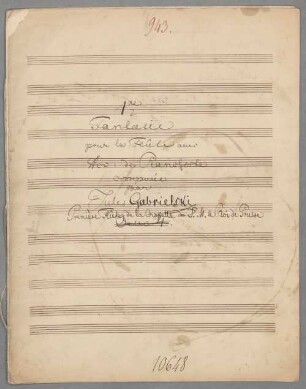 943.
1re
Fantaisie
pour la Flûte avec
Acc. de Pianoforte
composée
par
Jules Gabrielski
Première Flûte de la Chapelle de S. M. le Roi de Prusse
10648